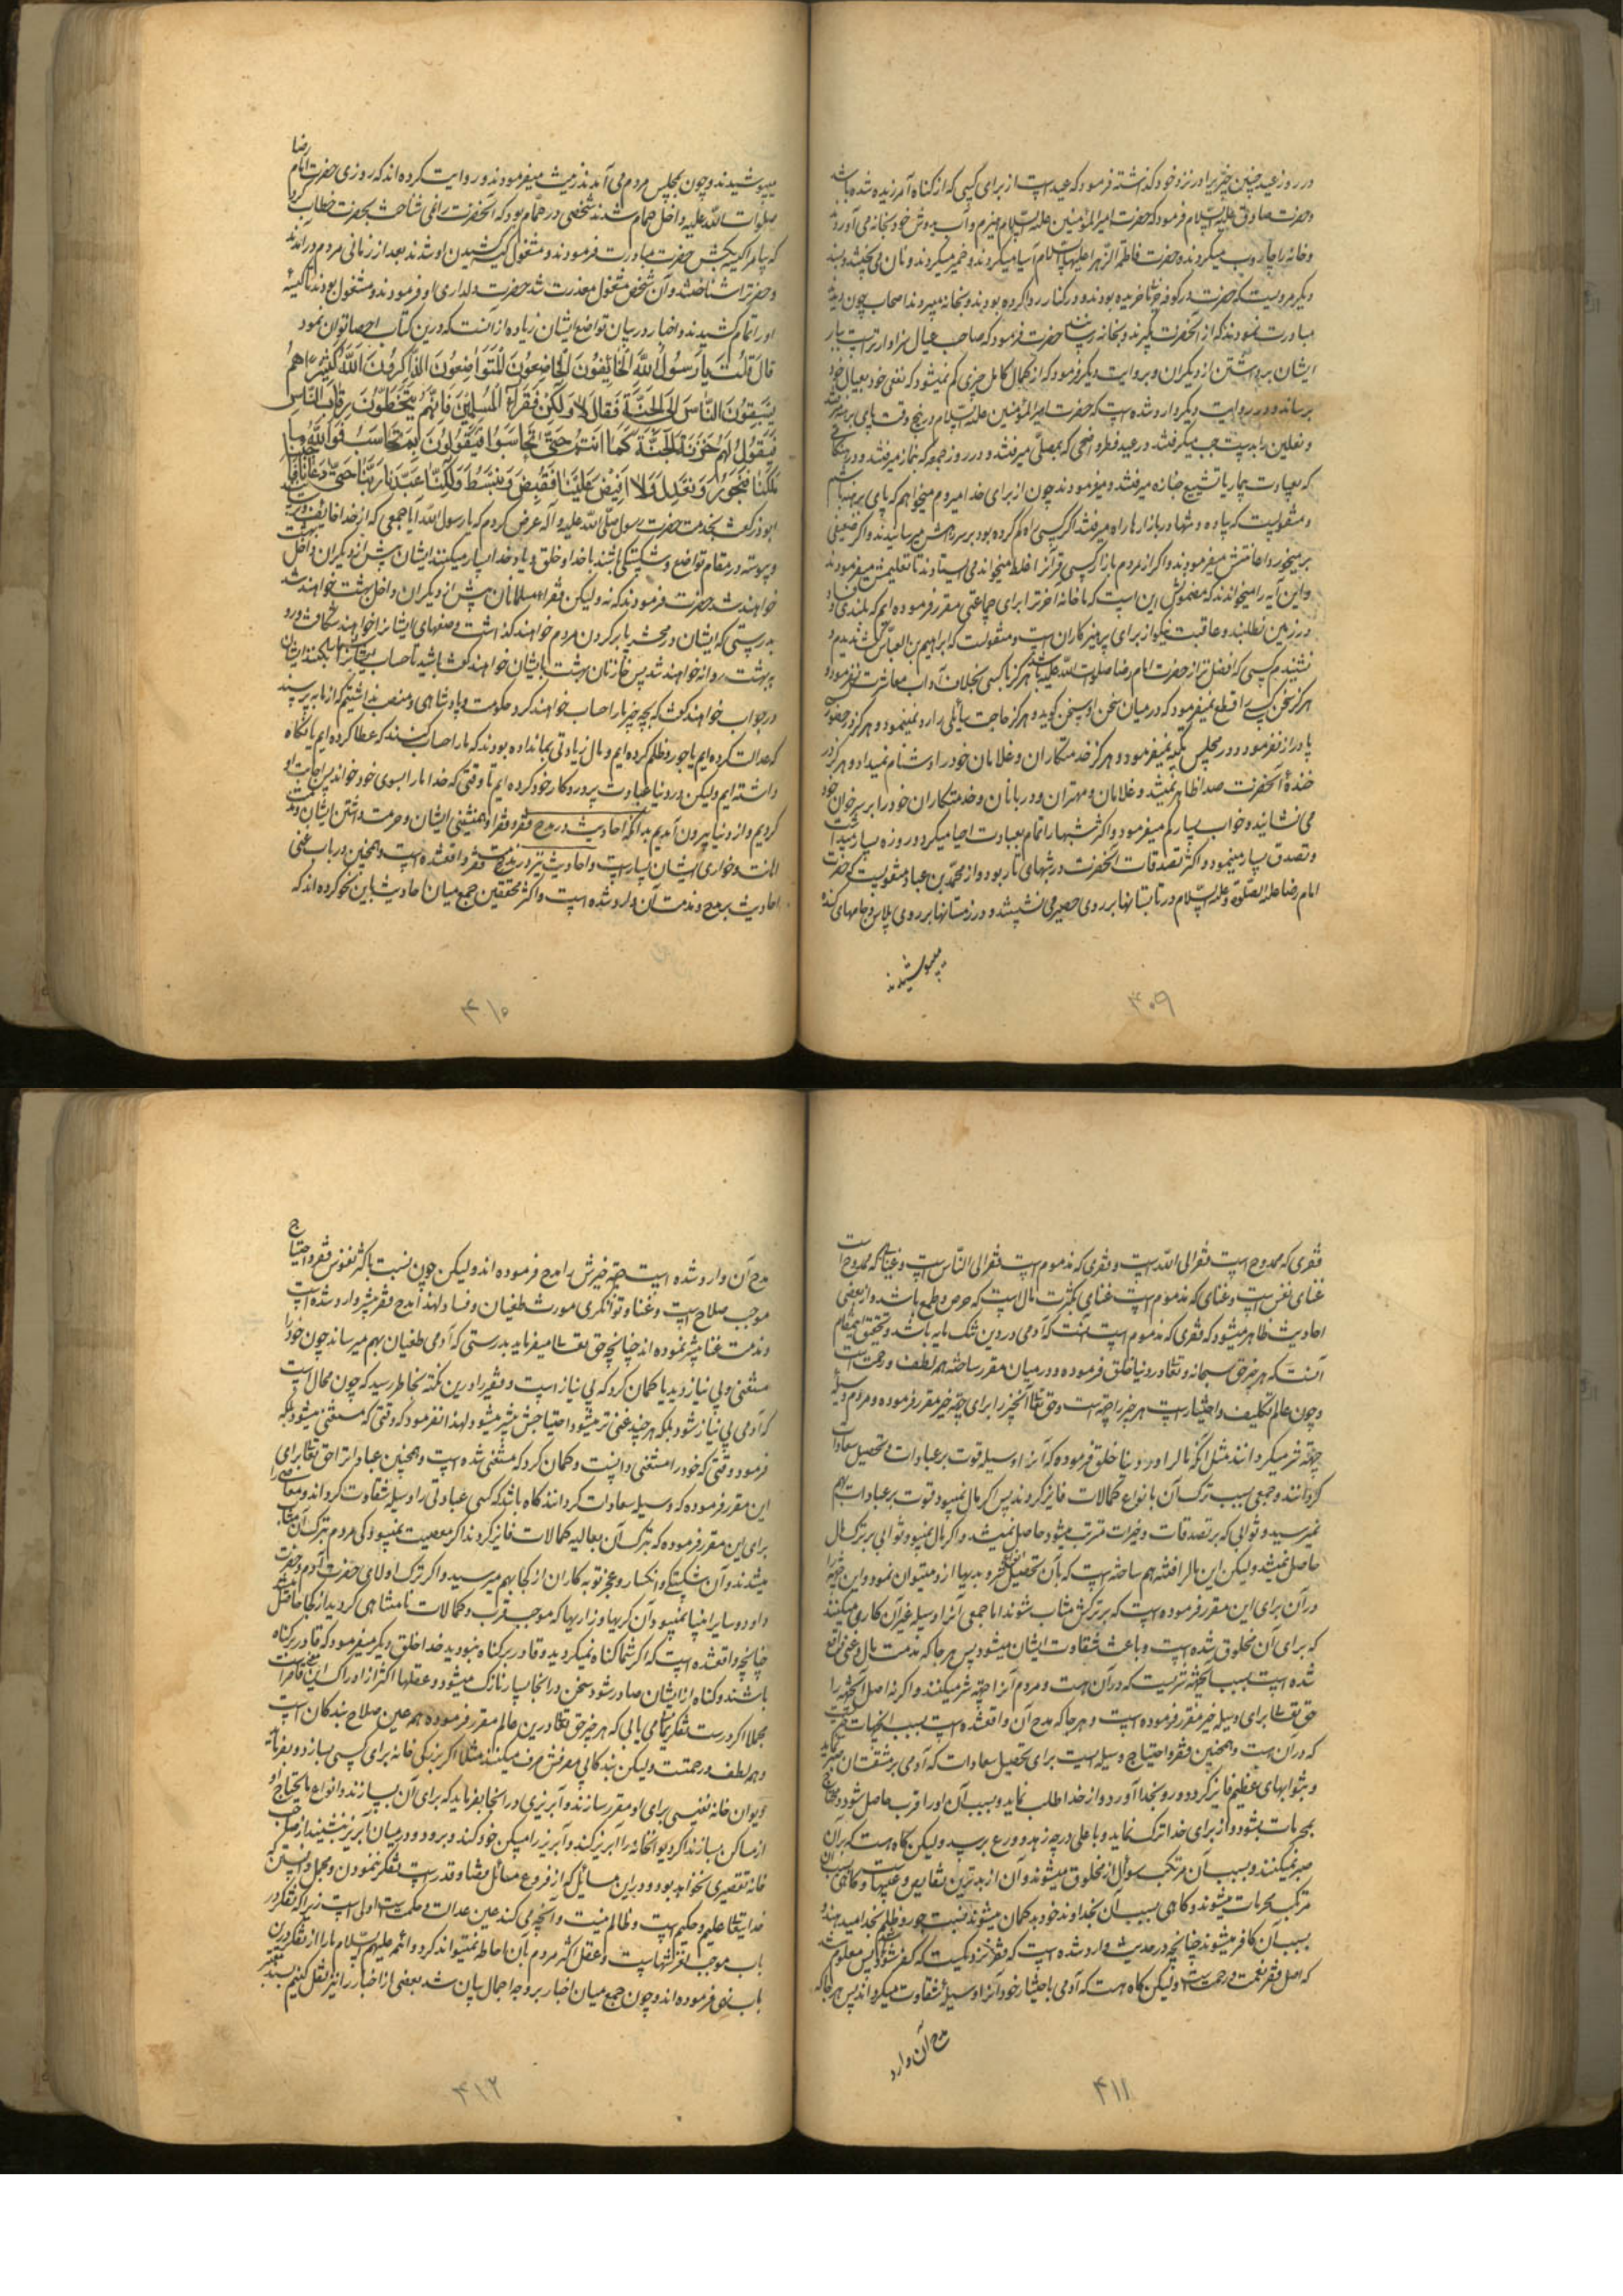 در روز عید چنین چیزی را در نزد خود گذاشته فرمود که عید است از برای کسی که از گناه آمرزیده شده باشد
و حضرت صادق علیه السلام فرمود که حضرت امیر المؤمنین علیه السلام هیزم و آب بدوش خود بخانه می آورد
و خانه را جاروب میکردند و حضرت فاطمه الزهرا علیها السلام آسیا میکردند و خمیر میکردند و نان می پختند و بسند
دیگر مرویست که حضرت در کوفه خرما خریده بودند و در کنار ردا کرده بودند و بخانه میبردند اصحاب چون دیدند
مبادرت نمودند که از آنحضرت بگیرند و بخانه رسانند حضرت فرمود که صاحب عیال سزاوارتر است ببار
ایشان برداشتن از دیگران و بروایت دیگر فرمود که از کمال کامل چیزی کم نمیشود که نفعی خود بعیال خود
برساند و در روایت دیگر وارد شده است که حضرت امیر المؤمنین علیه السلام در پنج وقت پای برهنه میرفتند
و نعلین را بدست چپ میگرفتند در عید فطر و اضحی که بمصلی میرفتند و در روز جمعه که بنماز میرفتند و در هنگامی
که بعیادت بیمار یا تشییع جنازه میرفتند و میفرمودند چون از برای خدا میروم میخواهم که پای برهنه باشم
و منقولست که پیاده و تنها در بازارها راه میرفتند اگر کسی راه گم کرده بود بر سر راهش میرسانیدند و اگر ضعیفی
بر میخورد اعانتش میفرمودند و اگر از مردم بازار کسی قرآن را غلط میخواند می ایستادند تا تعلیمش میفرمودند
و این آیه را میخواندند که مضمونش این است که ما خانه آخرت را برای جماعتی مقرر فرموده ایم که بلندی و فساد
در زمین نطلبند و عاقبت نیکو از برای پرهیزکاران است و منقولست که ابراهیم بن العباس گفت ندیدم و
نشنیدم کسی که افضل تر از حضرت امام رضا صلوات الله علیه باشد هرگز با کسی بخلاف آداب معاشرت نفرمود و
هرگز سخن کسی را قطع نمیفرمود که در میان سخن او سخن گوید و هرگز حاجت سائلی را رد نمینمود و هرگز در حضور
پا دراز نفرمود و در مجلس تکیه نمیفرمود و هرگز خدمتکاران و غلامان خود را دشنام نمیداد و هرگز در
خنده آنحضرت صدا ظاهر نمیشد و غلامان و مهتران و دربانان و خدمتکاران خود را بر سر خوان خود
می نشانید و خواب بسیار کم میفرمود و اکثر شبها را تمام بعبادت احیا میکرد و روزه بسیار میداشت
و تصدق بسیار مینمود و اکثر تصدقات آنحضرت در شبهای تار بود و از محمد بن عباد منقولست که حضرت
امام رضا علیه الصلوة و علیه السلام در تابستانها بر روی حصیر می نشستند و در زمستانها بر روی پلاس و جامهای کنده
میپوشیدند
۴۰۹
میپوشیدند و چون بمجلس مردم می آمدند زینت میفرمودند و روایت کرده اند که روزی حضرت امام رضا
صلوات الله علیه داخل حمام شدند شخصی در حمام بود که آنحضرت را نمی شناخت بحضرت خطاب کرد
که بیا مرا کیسه بکش حضرت مبادرت فرمودند و مشغول کیسه کشیدن او شدند بعد از زمانی مردم در آمدند
و حضرت را شناختند و آن شخص مشغول معذرت شد حضرت دلداری او فرمودند و مشغول بودند تا کیسه
او را تمام کشیدند و اخبار در بیان تواضع ایشان زیاده از انست که درین کتاب احصا توان نمود
قال قلت یا رسول الله الخایفون الخاضعون المتواضعون الذاکرون الله کثیرا هم
یسبقون الناس الی الجنة فقال لا و لکن فقراء المسلمین فانهم یتخطون رقاب الناس
فیقول لهم خزنة الجنة کما انتم حتی تحاسبوا فیقولون بم نحاسب فوالله ما
ملکنا فنجور و نعدل و لا افیض علینا فنقبض و نبسط و لکنا عبدنا ربنا حتی دعانا فاجبنا
ابوذر گفت بخدمت حضرت رسول صلی الله علیه و آله عرض کردم که یا رسول الله آیا جمعی که از خدا خائف و ترسانند
و پیوسته در مقام تواضع و شکستگی باشند با خدا و خلق و یاد خدا بسیار میکنند ایشان پیش از دیگران داخل بهشت
خواهند شد حضرت فرمودند که نه ولیکن فقراء مسلمانان پیش از دیگران داخل بهشت خواهند شد
بدرستی که ایشان در محشر پا بر گردن مردم خواهند گذاشت و صفهای ایشان را خواهند شکافت و رو
ببهشت روانه خواهند شد پس خازنان بهشت بایشان خواهند گفت باشید تا حساب شما را بکنند ایشان
در جواب خواهند گفت که بچه چیز ما را حساب خواهند کرد حکومت و پادشاهی و منصب نداشتیم که از ما بپرسند
که عدالت کرده ایم یا جور و ظلم کرده ایم و مال زیادتی بما نداده بودند که ما را حساب کنند که عطا کرده ایم یا نگاه
داشته ایم ولیکن در دنیا عبادت پروردگار خود کرده ایم تا وقتی که خدا ما را بسوی خود خواند پس اجابت او
کردیم و از دنیا بیرون آمدیم بدانکه احادیث در مدح فقر و فقرا و همنشینی ایشان و حرمت داشتن ایشان و مذمت
اهانت و خواری ایشان بسیار است و احادیث نیز در مذمت فقر واقع شده است و همچنین در باب غنی
احادیث بر مدح و مذمت آن وارد شده است و اکثر محققین جمع میان احادیث باین نحو کرده اند که
۴۱۰
فقری که ممدوح است فقر الی الله است و فقری که مذموم است فقر الی الناس است و غنائی که ممدوح است
غنای نفس است و غنای که مذموم است غنای بکثرت مال است که حرص و طمع باشد و از بعضی
احادیث ظاهر میشود که فقری که مذموم است آنست که آدمی در دین تنک مایه باشد و تحقیق این مقام
آنست که هر چیز حق سبحانه و تعالی در دنیا خلق فرموده و در میان مقرر ساخته همه لطف و رحمت است
و چون عالم تکلیف و اختیار است هر چیز را جهتی است و حق تعالی آنچیز را برای جهة خیر مقرر فرموده و مردم وسیله
جهة شر میگردانند مثل آنکه مال را در دنیا خلق فرموده که آنرا وسیله قوت بر عبادات و تحصیل سعادات
گردانند و جمعی بسبب ترک آن بانواع کمالات فایز گردند پس اگر مال نمیبود قوت بر عبادات بهم
نمیرسید و ثوابی که بر تصدقات و خیرات مترتب میشود حاصل نمیشد و اگر مال نمیبود ثوابی بر ترک مال
حاصل نمیشد ولیکن این مال را فتنه هم ساخته است که بآن تحصیل شر و بدیها از او میتوان نمود و این جهة را
در آن برای این مقرر فرموده است که بر ترکش مثاب شوند اما جمعی آنرا وسیله غیر آن کاری میکنند
که برای آن مخلوق شده است و باعث شقاوت ایشان میشود پس هر جا که مذمت مال و غنی واقع
شده است بسبب آنجهة شریست که در آن هست و مردم آنرا جهة شر میکنند و اگر نه اصل آنجهة را
حق تعالی برای وسیله خیر مقرر فرموده است و هر جا که مدح آن واقع شده است بسبب آنجهات خیریت
که در آن هست و همچنین فقر و احتیاج وسیله ایست برای تحصیل سعادات که آدمی بر مشقت آن صبر نماید
و بثوابهای عظیم فایز گردد و رو بخدا آورد و از خدا طلب نماید و بسبب آن او را قرب حاصل شود و محتاج
بمحرمات بشود و از برای خدا ترک نماید و باعلی درجه زهد و ورع برسد ولیکن گاه هست که بر آن
صبر نمیکنند و بسبب آن مرتکب سؤال از مخلوق میشوند و آن از بدترین نقایص و عیبها است و گاهی بسبب آن
مرتکب محرمات میشوند و گاهی بسبب آن بخداوند خود بدگمان میشوند نسبت جور و ظلم بخدا میدهند و
بسبب آن کافر میشوند چنانچه در حدیث وارد شده است که فقر نزدیکست که کفر شود پس معلوم شد
که اصل فقر نعمت و رحمت است ولیکن گاه هست که آدمی باختیار خود آنرا وسیله شقاوت میگرداند پس هر جا که
مدح آن وارد
۴۱۱
مدح آن وارد شده است جهة خیرش را مدح فرموده اند ولیکن چون نسبت باکثر نفوس فقر و احتیاج
موجب صلاح است و غنا و توانگری مورث طغیان و فساد لهذا مدح فقر بیشتر وارد شده است
و مذمت غنا بیشتر نموده اند چنانچه حق تعالی میفرماید بدرستی که آدمی طغیان بهم میرساند چون خود را
مستغنی و بی نیاز دید یا گمان کرد که بی نیاز است و فقیر را درین نکته بخاطر رسید که چون محال است
که آدمی بی نیاز شود بلکه هر چند غنی تر میشود احتیاجش بیشتر میشود و لهذا نفرمود که وقتی که مستغنی میشود بلکه
فرمود وقتی که خود را مستغنی دانست و گمان کرد که مستغنی شده است و همچنین عبادات را حق تعالی برای
این مقرر فرموده که وسیله سعادات گردانند گاه باشد که کسی عبادتی را وسیله شقاوت گرداند و معاصی را
برای این مقرر فرموده که بترک آن بمعالیه کمالات فایز گردند اگر معصیت نمیبود کی مردم بترک آن مثاب
میشدند و آن شکستگی و انکسار و عجز توبه کاران از کجا بهم میرسید و اگر ترک اولای حضرت آدم و حضرت
داود و سایر انبیا نمیبود آن گریها و زاریها که موجب قرب و کمالات نامتناهی گردید از کجا حاصل میشد
چنانچه واقع شده است که اگر شما گناه نمیکردید و قادر بر گناه نبودید خدا خلق دیگر میفرمود که قادر بر گناه
باشند و گناه از ایشان صادر شود سخن در اینجا بسیار نازک میشود و عقلها اکثر از ادراک این قاصر است
مجملا اگر درست تفکر نمائی می یابی که هر چیز حق تعالی درین عالم مقرر فرموده همه عین صلاح بندگان است
و همه لطف و رحمتست ولیکن بندگان بی مصرفش صرف میکنند مثلا اگر بزرگی خانه برای کسی بسازد و بفرماید
دیوان خانه نفیسی برای او مقرر سازند و آبریزی در آنجا بفرماید که برای آن بسازند و انواع ما یحتاج او
از مساکن بسازند اگر دیوانخانه را آبریز کند و آبریز را مسکن خود کند و برود و در میان آبریز بنشیند از صاحب
خانه تقصیری نخواهد بود و در این مسائل که از فروع مسائل قضا و قدر است تفکر ننمودن و مجمل دانستن که
خدایتعالی علیم و حکیم است و ظالم نیست و آنچه می کند عین عدالت و حکمت است اولی است زیرا که تفکر در این
باب موجب لغزشهاست و عقل اکثر مردم بآن احاطه نمیتواند کرد و ائمه علیهم السلام ما را از تفکر درین
باب نهی فرموده اند و چون جمع میان اخبار بر وجه اجمال بیان شد بعضی از اخبار را نیز نقل کنیم بسند معتبر
۴۱۲